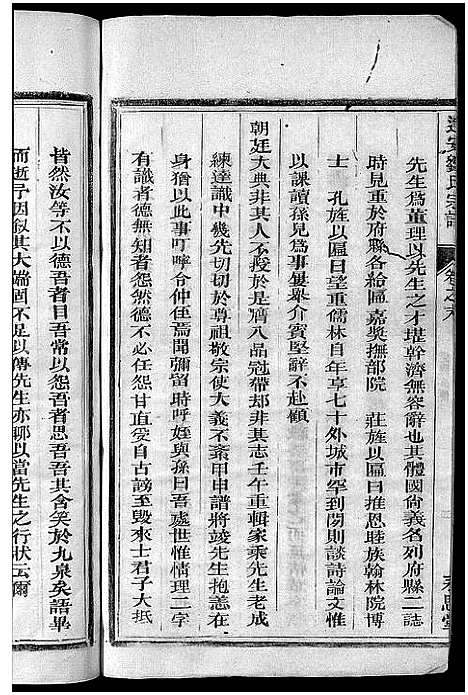 遂安劉氏宗譜　卷之末
先生爲董理以先生之才堪幹濟無容辭也其體國尚義名列府縣二誌
時見重於府縣各給匾嘉獎撫部院　莊旌以匾曰推恩睦族翰林院博
士　孔旌以匾曰望重儒林自年享七十外城市罕到閉則談詩論文惟
以課讀孫兒爲事屢舉介賓堅辭不赴顧
朝廷大典非其人不授於是膺八品冠帶却非其志壬午重輯家乘先生老成
練達識中幾先切切於尊祖敬宗使大義不紊甲申譜將竣先生抱恙在
身猶以此事叮嚀令仲侄焉聞彌留時呼姪與孫曰吾處世惟情理二字
有識者德無知者怨然德不必任怨甘直受自古謗至毀來士君子大抵
皆然汝等不以德吾者目吾常以怨吾者思吾吾其含笑於九泉矣語畢
而逝予因叙其大端固不足以傳先生亦聊以當先生之行狀云爾